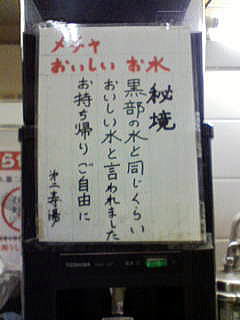 メチャ
おいしい お水
秘境
黒部の水と同じくらい
おいしい水と言われました
お持ち帰りご自由に
TOSHIBA